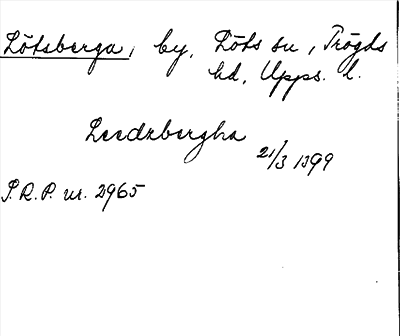 Lötsberga, by, Löts sn, Trögds
hd, Upps. l.
Leedzbergha
21/3 1399
S.R.P. nr. 2965